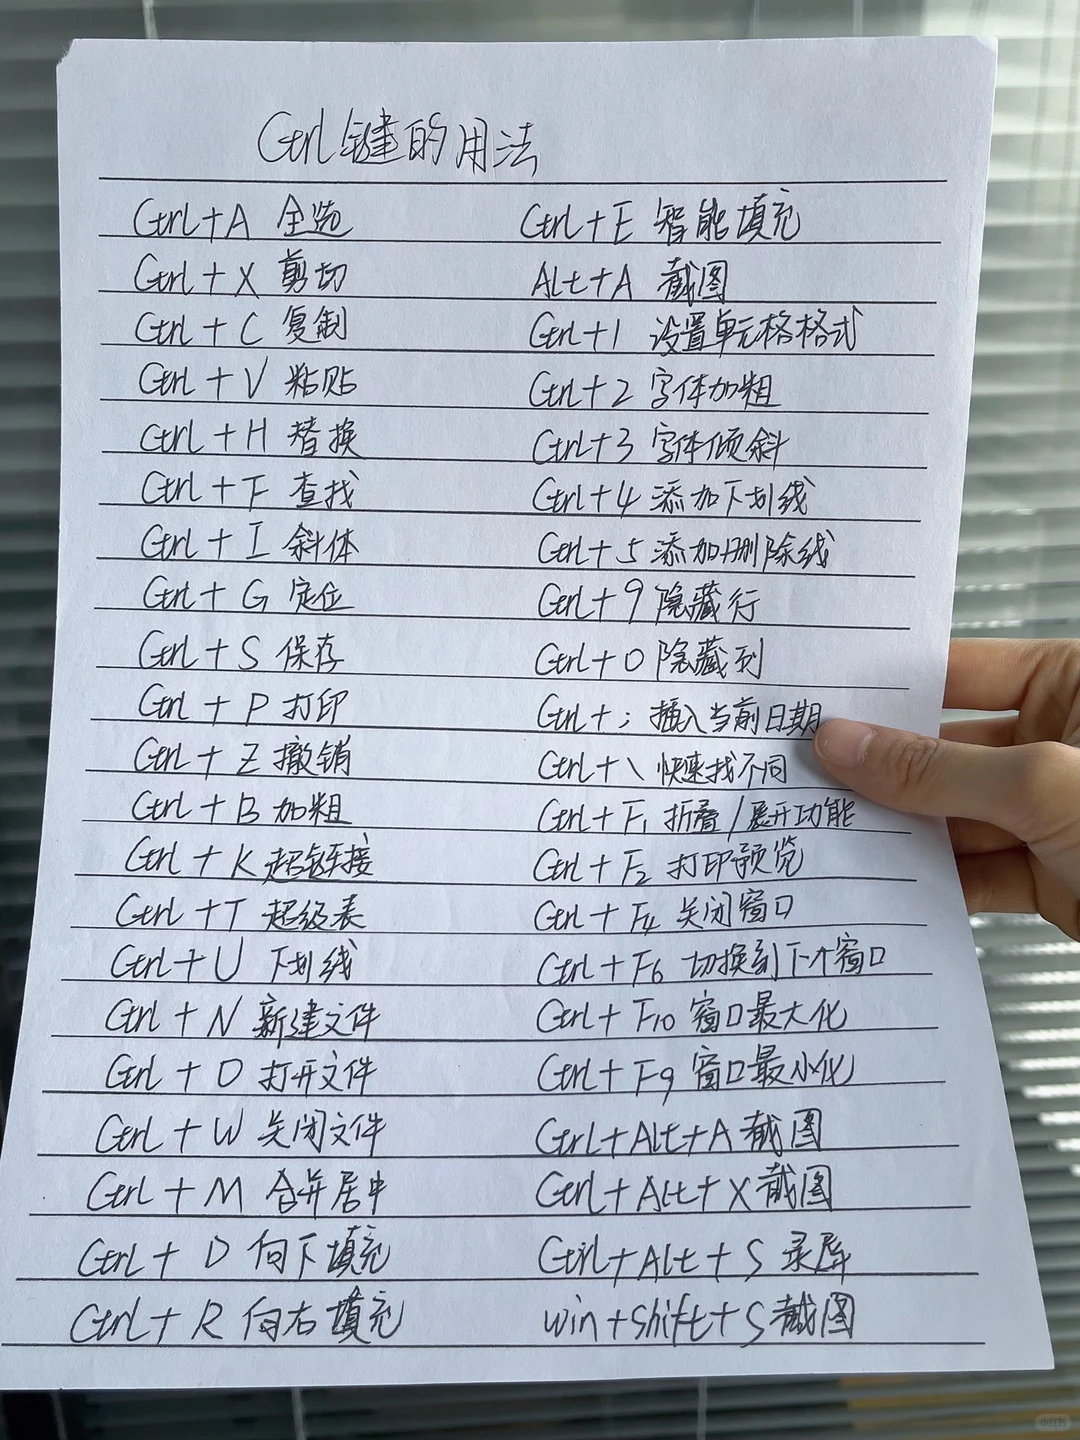 Ctrl键的用法
Ctrl+A 全选
Ctrl+X 剪切
Ctrl+C 复制
Ctrl+V 粘贴
Ctrl+H 替换
Ctrl+F 查找
Ctrl+I 斜体
Ctrl+G 定位
Ctrl+S 保存
Ctrl+P 打印
Ctrl+Z 撤销
Ctrl+B 加粗
Ctrl+K 超链接
Ctrl+T 超级表
Ctrl+U 下划线
Ctrl+N 新建文件
Ctrl+O 打开文件
Ctrl+W 关闭文件
Ctrl+M 合并居中
Ctrl+D 向下填充
Ctrl+R 向右填充
Ctrl+E 智能填充
Alt+A 截图
Ctrl+1 设置单元格格式
Ctrl+2 字体加粗
Ctrl+3 字体倾斜
Ctrl+4 添加下划线
Ctrl+5 添加删除线
Ctrl+9 隐藏行
Ctrl+0 隐藏列
Ctrl+; 插入当前日期
Ctrl+\ 快速找不同
Ctrl+F1 折叠/展开功能
Ctrl+F2 打印预览
Ctrl+F4 关闭窗口
Ctrl+F6 切换到下个窗口
Ctrl+F10 窗口最大化
Ctrl+F9 窗口最小化
Ctrl+Alt+A 截图
Ctrl+Alt+X 截图
Ctrl+Alt+S 录屏
Win+Shift+S 截图
小红书